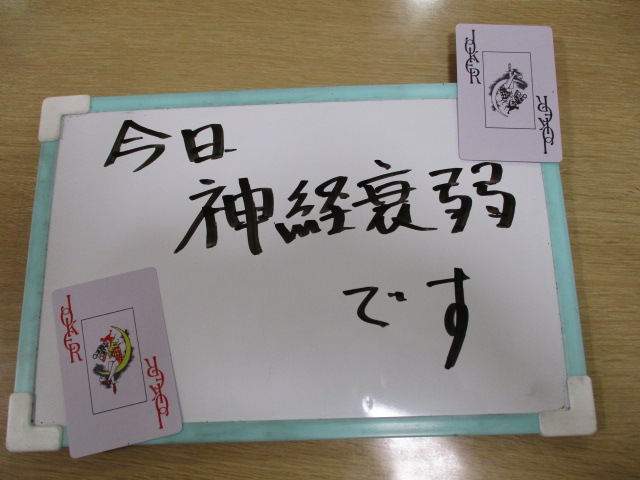 JOKER
JOKER
今日
神経衰弱
です
JOKER
JOKER